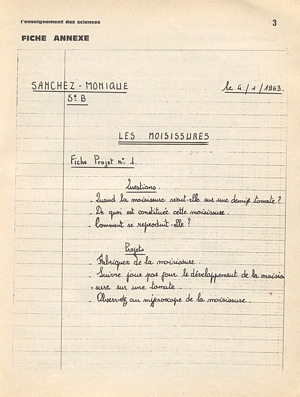 l'enseignement des sciences
3
FICHE ANNEXE
SANCHEZ - MONIQUE
le 4/1/1963
5e B
LES MOISISSURES
Fiche Projet n° 1.
Questions
- Quand la moisissure vient-elle sur une demie tomate ?
- De quoi est constituée cette moisissure.
- Comment se reproduit-elle ?
Projets
- Fabriquer de la moisissure.
- Suivre jour par jour le développement de la moisis
sure sur une tomate.
- Observer au microscope de la moisissure.